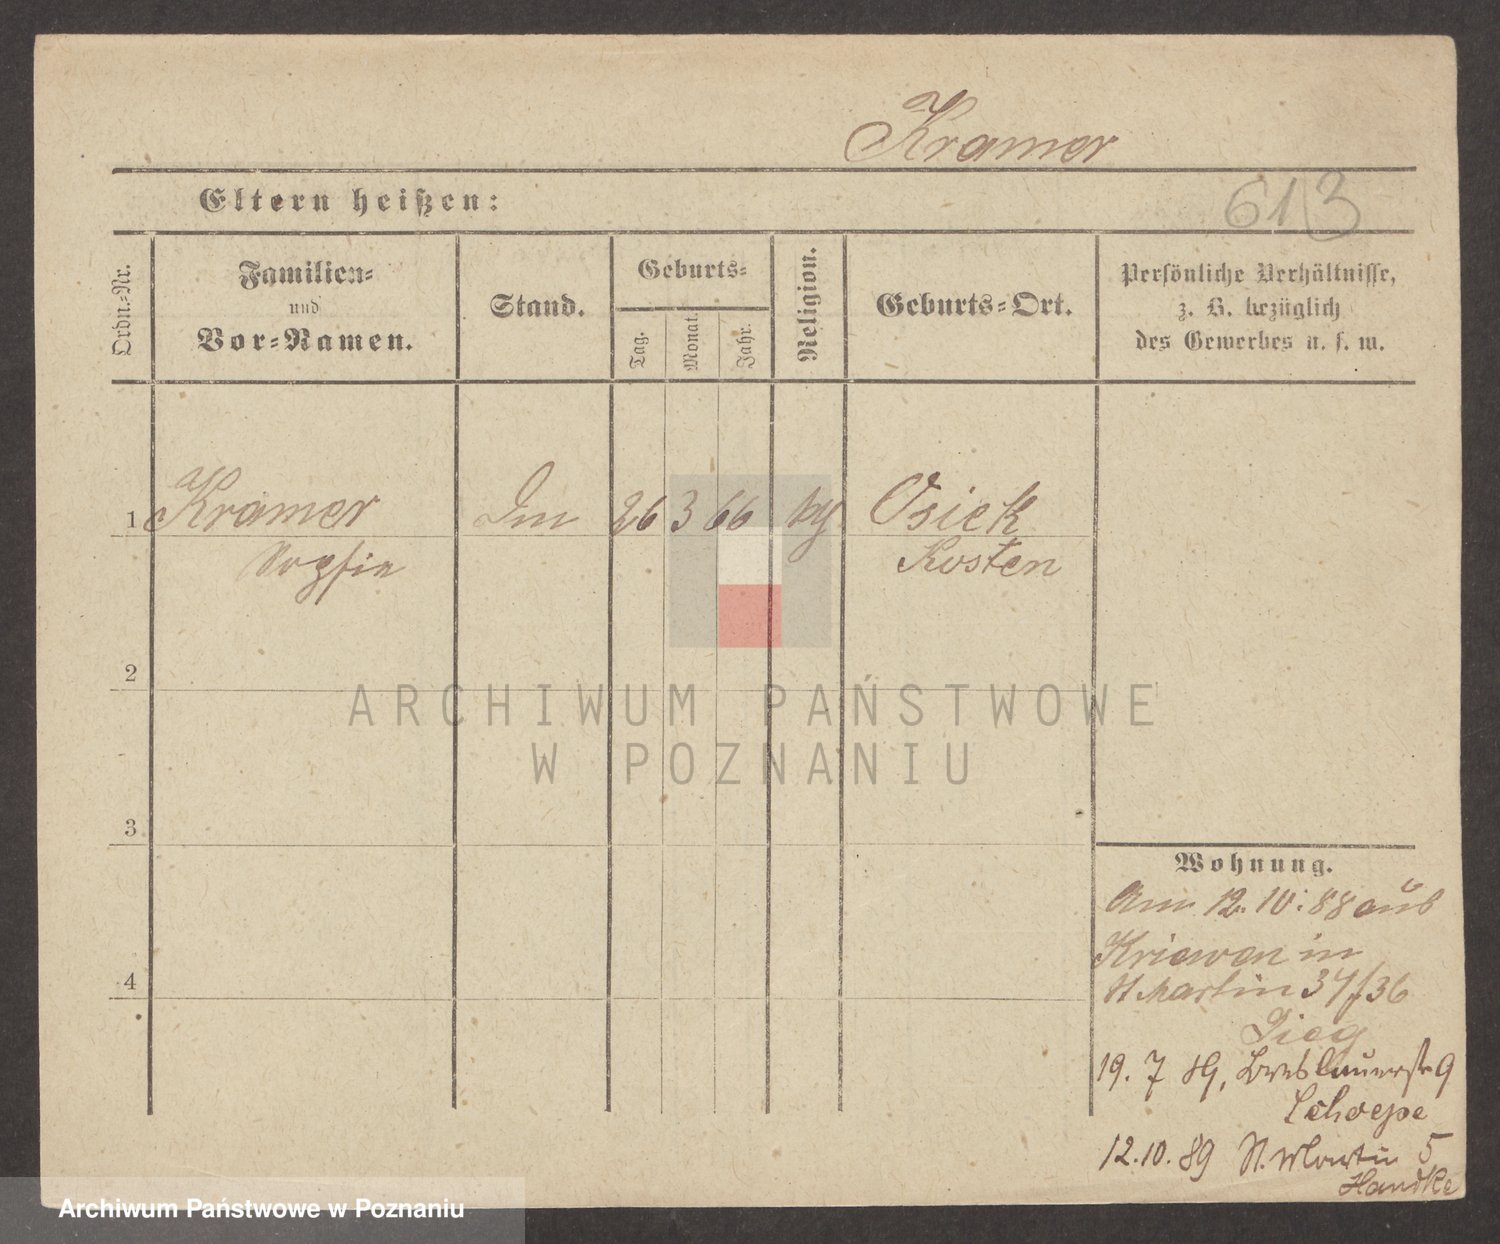 Kramer
Eltern heißen:
613
Ordn.-Nr.
Familien-
und
Vor-Namen.
Stand.
Geburts-
Tag.
Monat.
Jahr.
Religion.
Geburts-Ort.
Persönliche Verhältnisse,
z. B. bezüglich
des Gewerbes u. s. w.
1 Kramer 26 3 66 Osiek
Sophie Kosten
2
ARCHIWUM PAŃSTWOWE
W POZNANIU
3
4
Wohnung.
Am 12. 10. 88 aus
Kriewen in
St Martin 36
19. 7 89, Breslauerstr 9
12. 10. 89 St. Martin 5
Handke
Archiwum Państwowe w Poznaniu